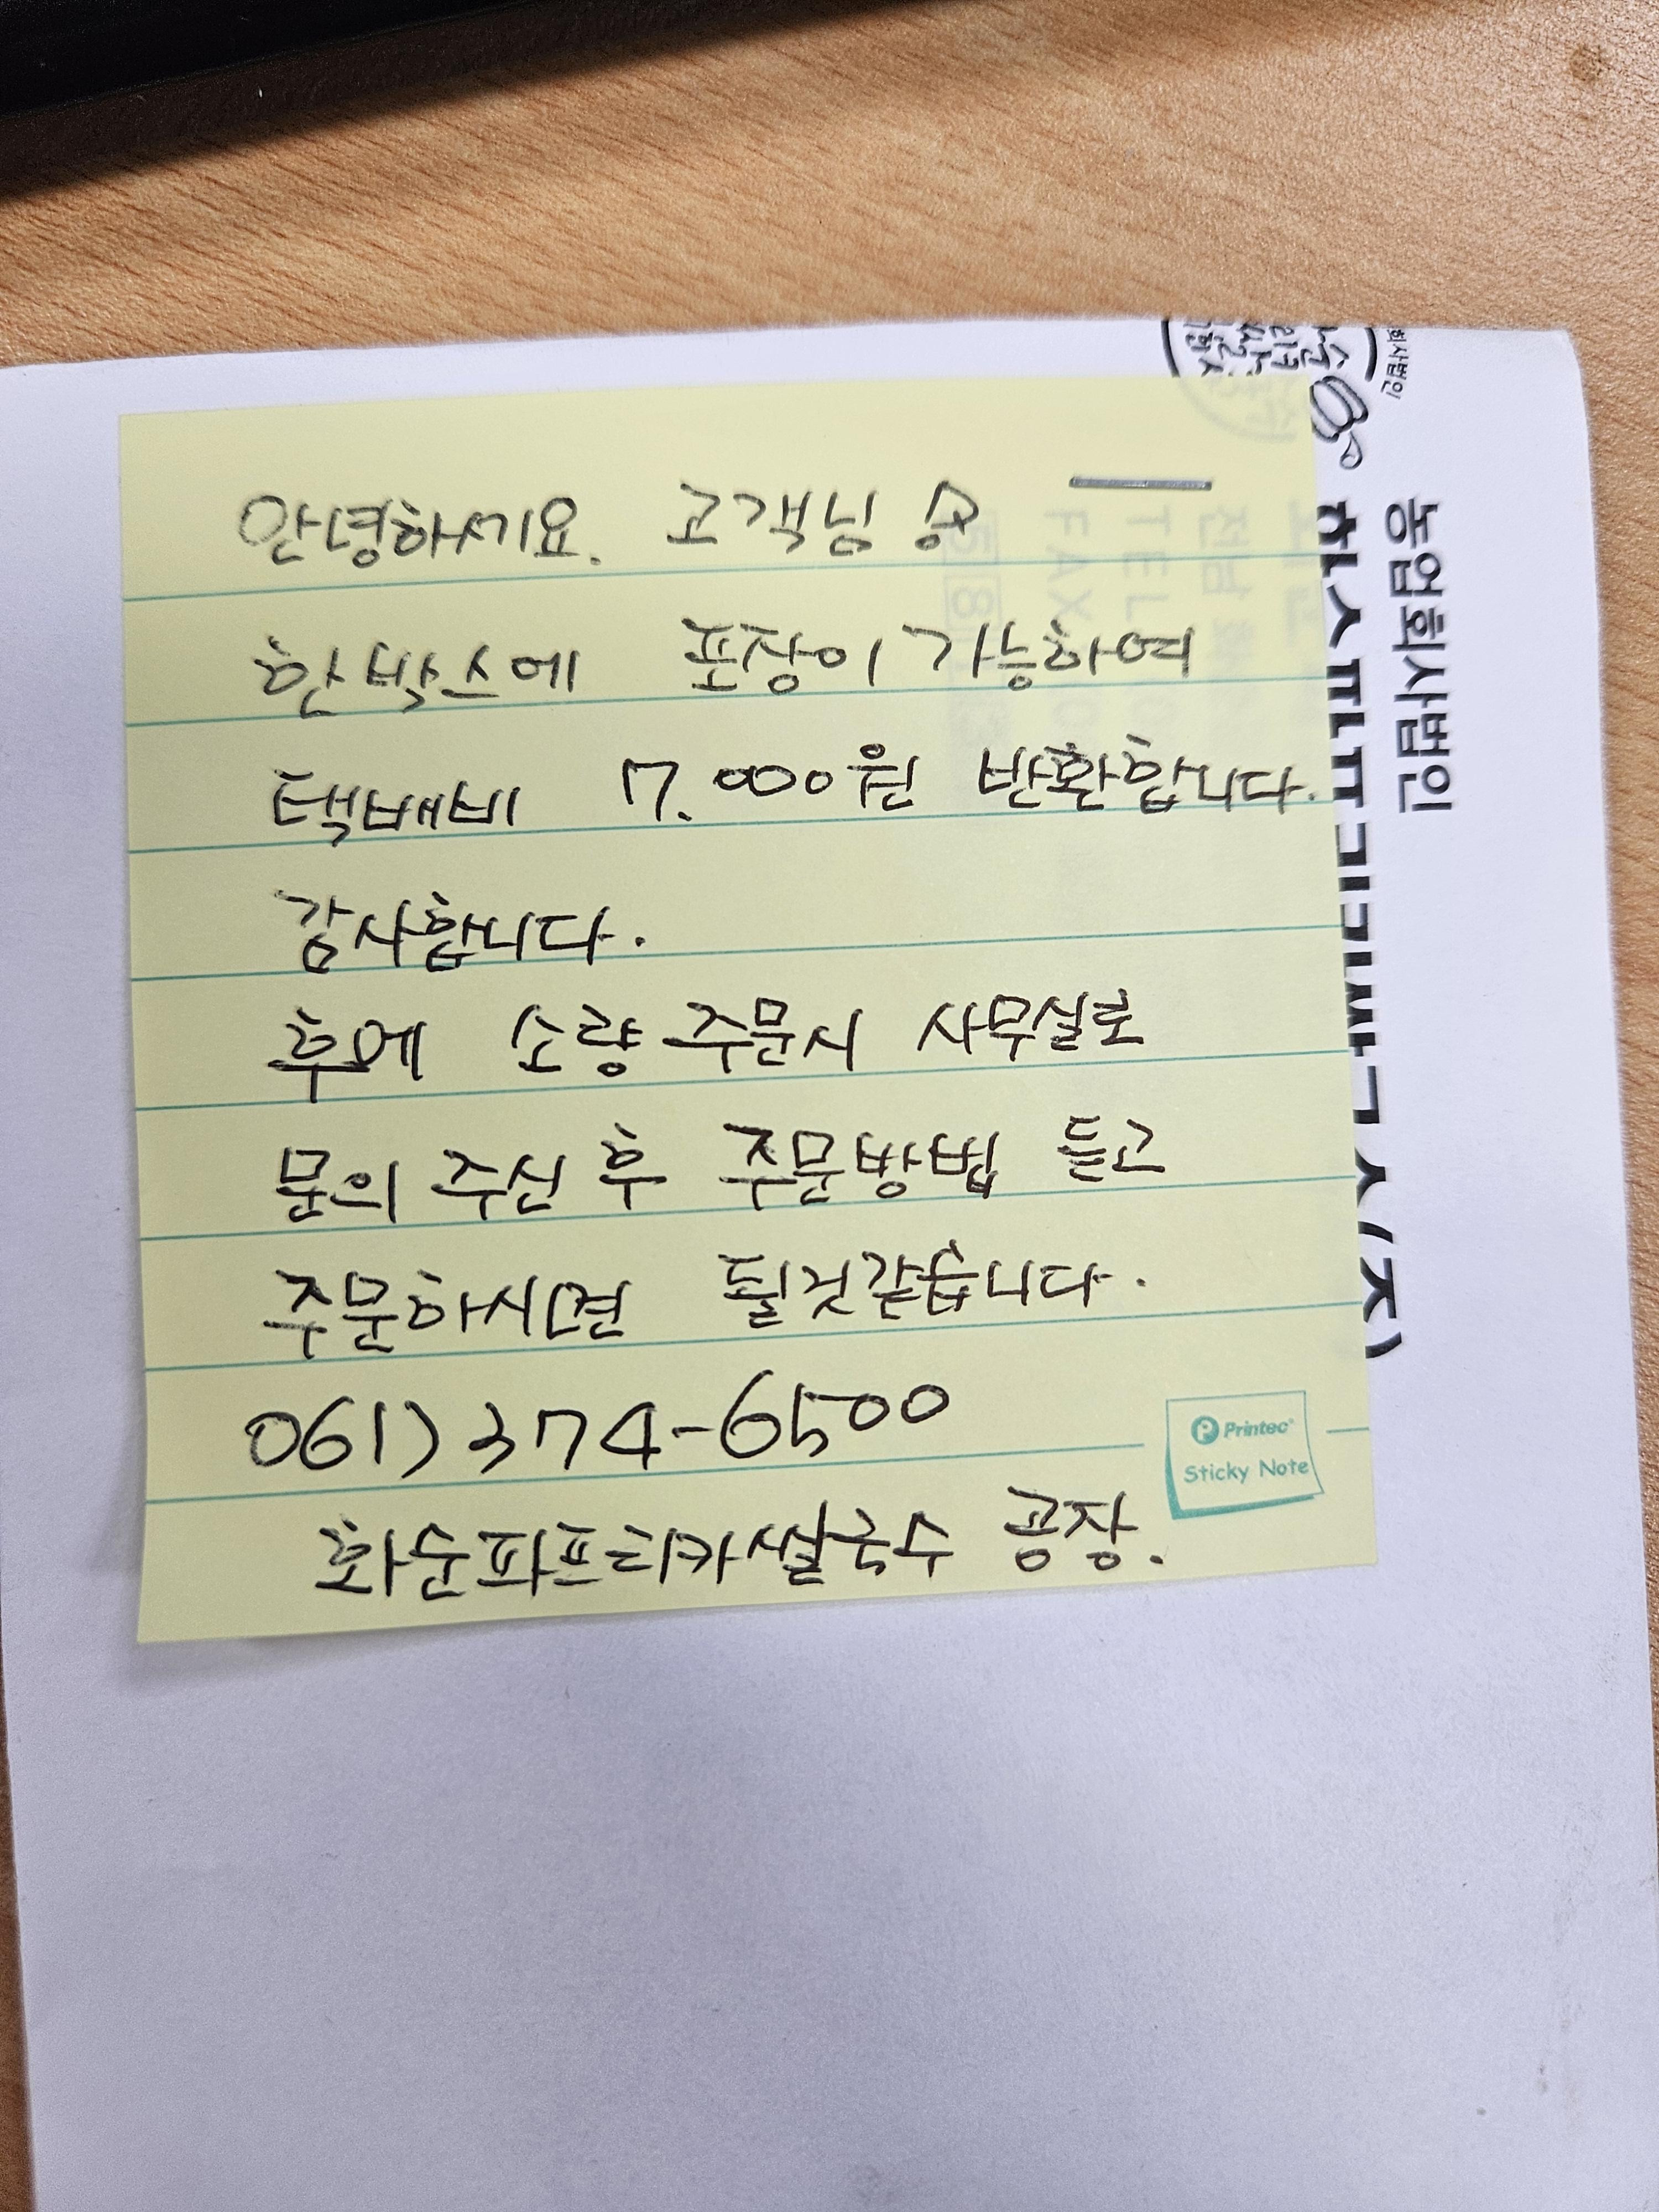 안녕하세요. 고객님 송
한박스에 포장이 가능하여
택배비 7.000원 반환합니다.
감사합니다.
후에 소량 주문시 사무실로
문의 주신 후 주문방법 듣고
주문하시면 될것같습니다.
061) 374-6500
화순파프리카쌀국수 공장.
Printec
Sticky Note
농업회사법인
회사법인